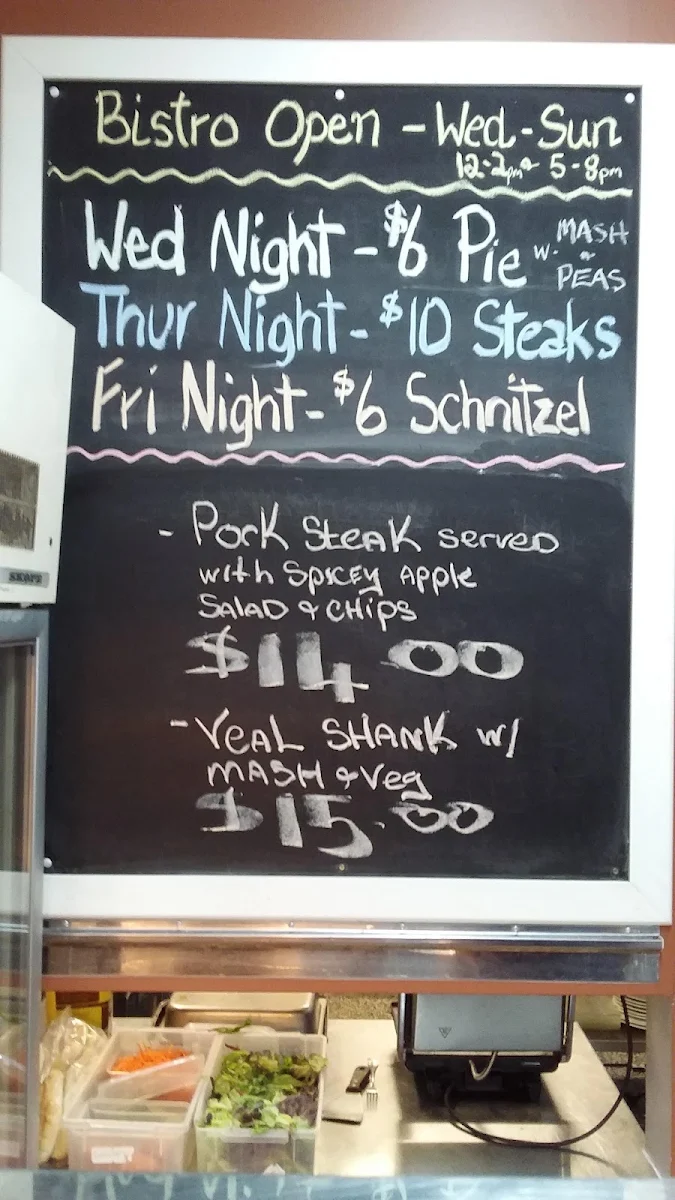 Bistro Open - Wed-Sun
12-2pm & 5-8pm
Wed Night - $6 Pie w. MASH & PEAS
Thur Night - $10 Steaks
Fri Night - $6 Schnitzel
- Pork Steak served
with Spicey Apple
Salad & Chips
$14.00
- Veal Shank w/
Mash & Veg
$15.00
SKOPE